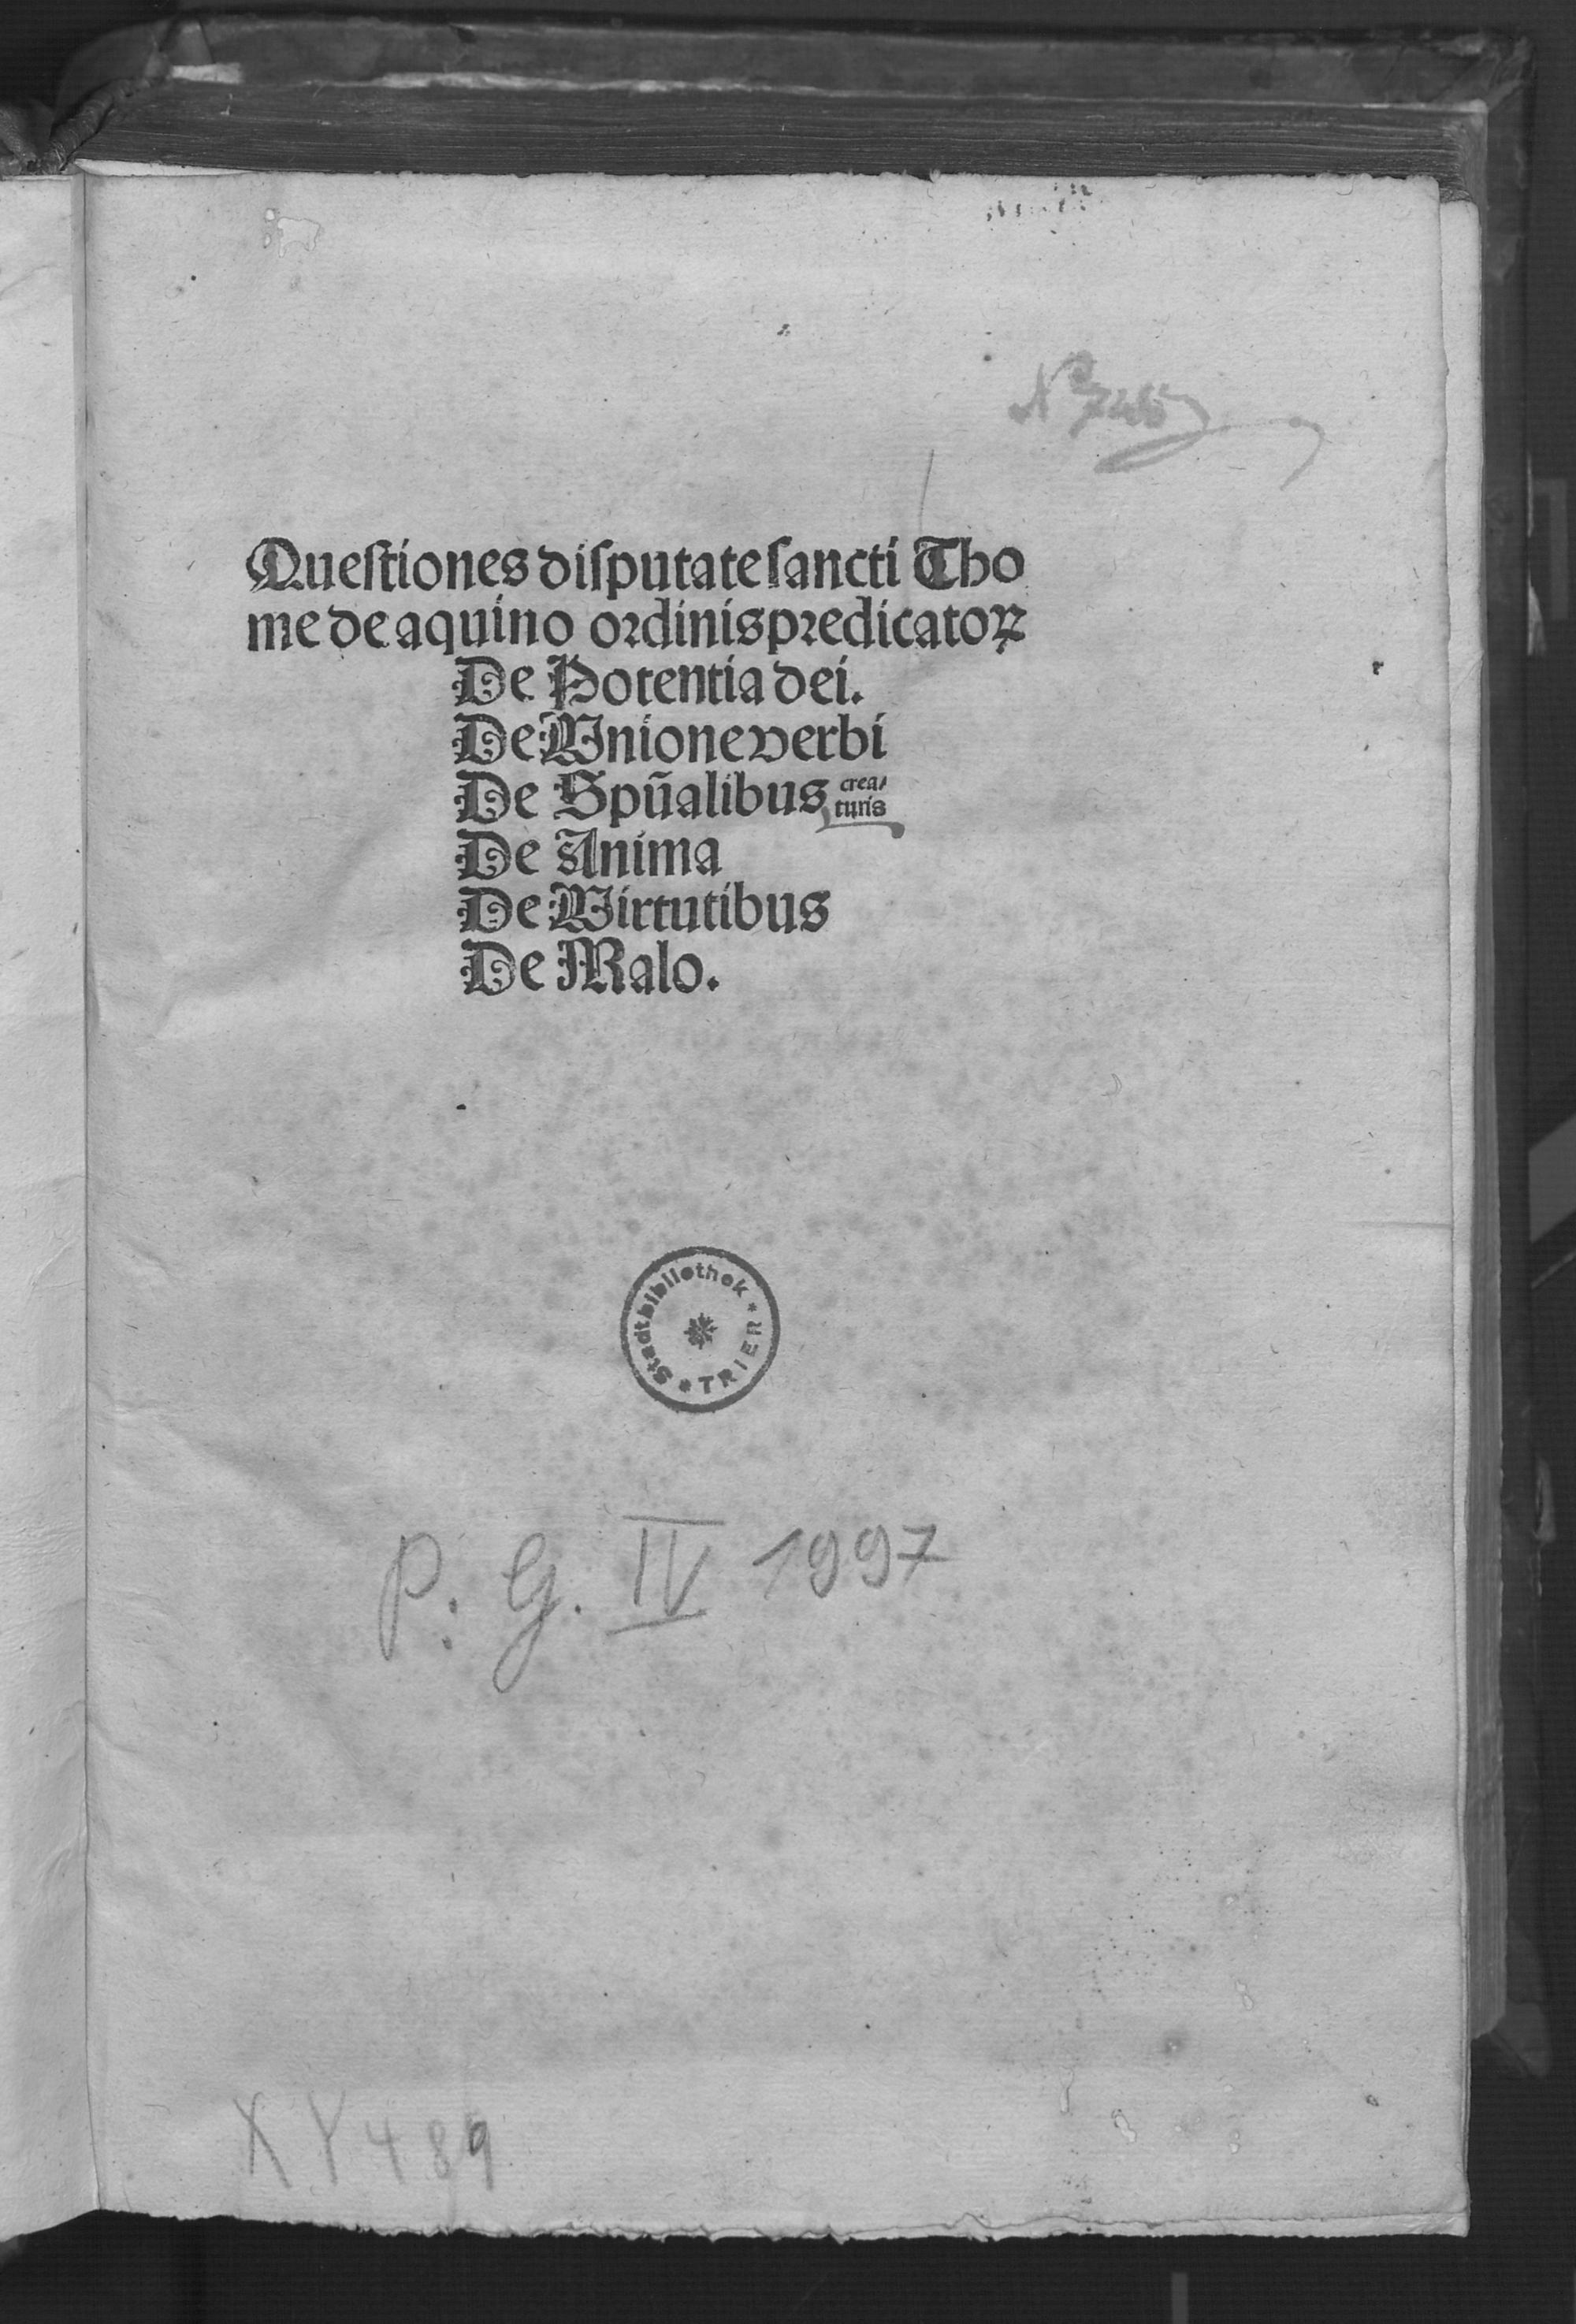 Questiones disputate sancti Tho
me de aquino ordinis predicatoꝝ
De Potentia dei.
De Unione verbi
De Spũalibus crea/
turis
De Anima
De Virtutibus
De Malo.
Stadtbibliothek * TRIER *
P. G. IV 1997
XY 489